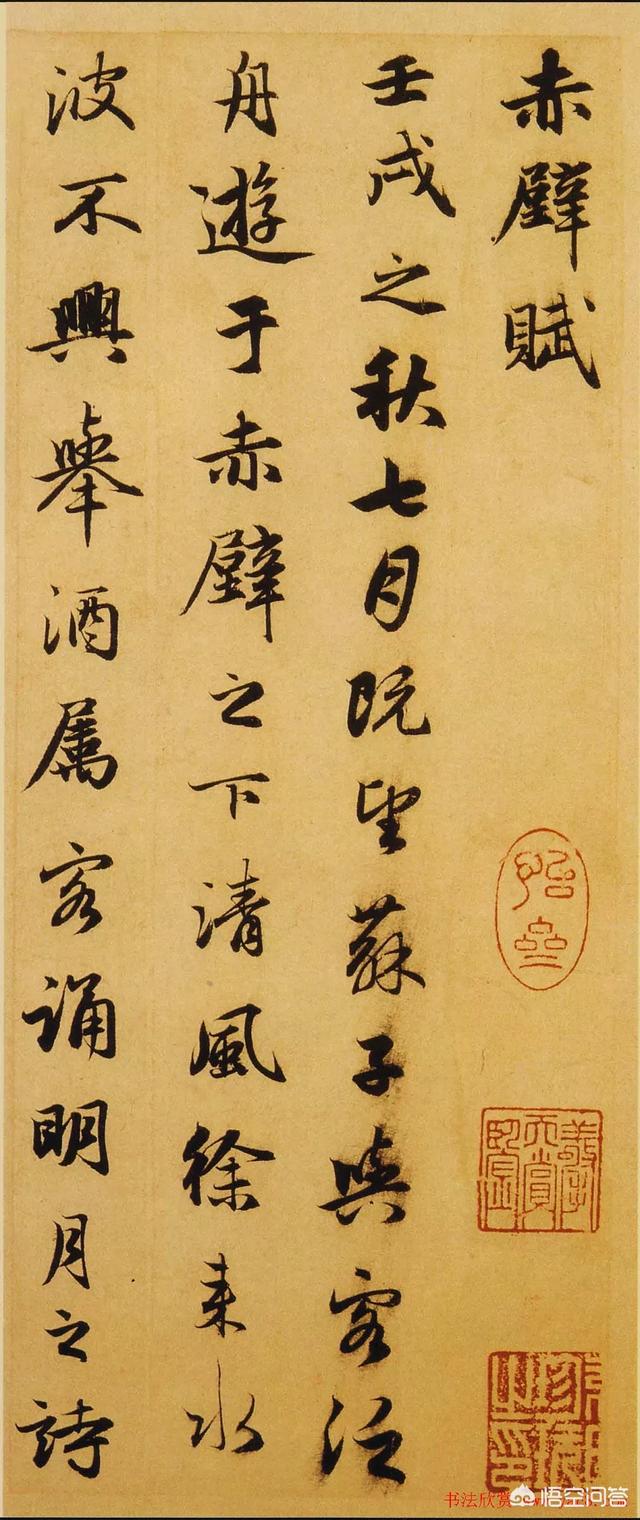 赤壁賦
壬戌之秋七月既望蘇子與客泛
舟遊于赤壁之下清風徐来水
波不興舉酒属客誦明月之詩
书法欣赏
悟空问答